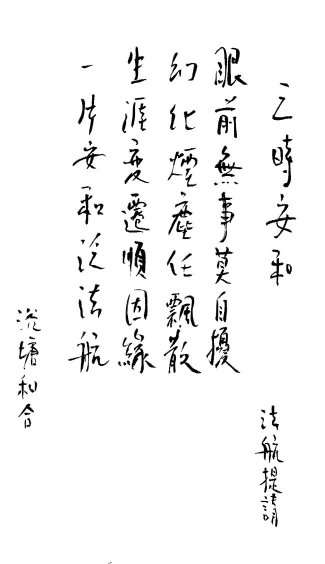 三時安和
法航提請
眼前無事莫自擾
幻化煙塵任飄散
生涯變遷順因緣
一片安和泛法航
塘和合